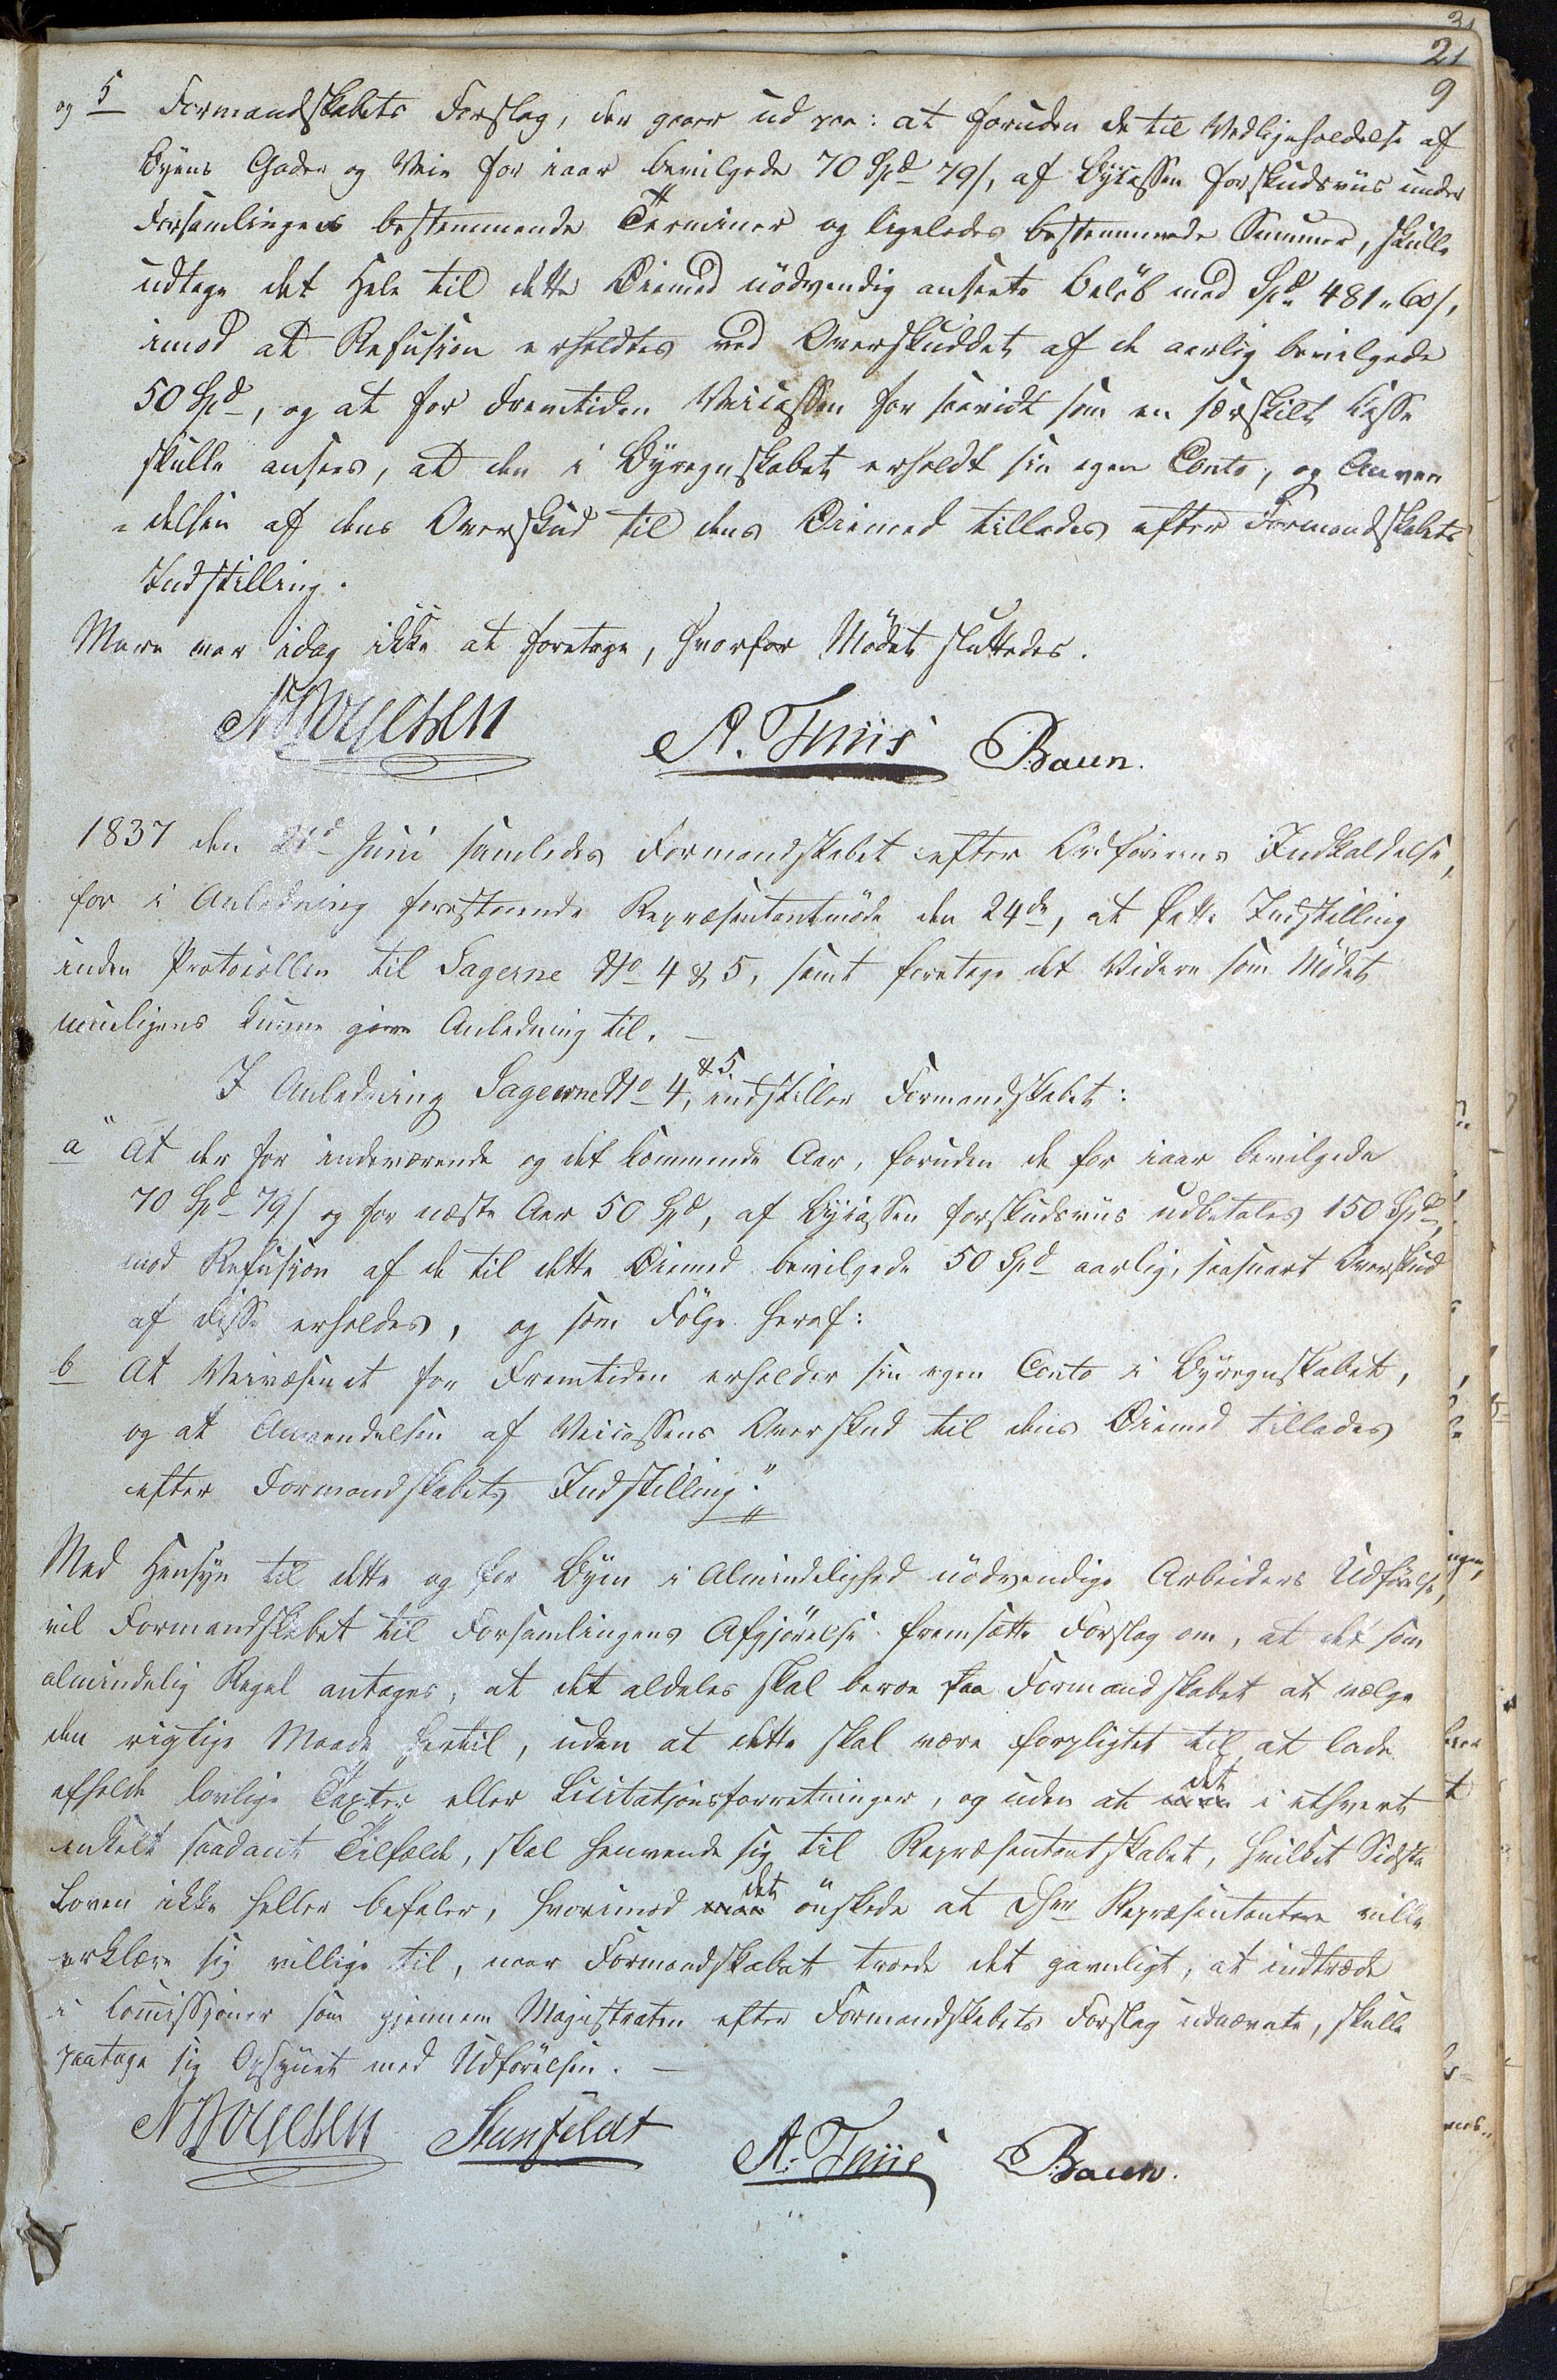 31
21
9
og 5 Formandskabets Forslag, der gaaer ud paa: at foruden de til Vedligeholdelse af
Byens Gader og Veie for iaar bevilgede 70 Spd 79/, af Bycassen forskudsviis under
Forsamlingens bestemmende Terminer og ligeledes bestemmende Summer, skulle
udtage det Hele til dette Öiemed nödvendig ansete Belöb med Spd 481 " 60/,
imod at Refusion erholdtes ved Overskuddet af de aarlig bevilgede
50 Spd, og at for Fremtiden Veicassen for saavidt som en særskilt Casse
skulle ansees, at den i Byregnskabet erholdt sin egen Conto, og Anven
"delsen af dens Overskud til dens Öiemed tillades efter Formandskabets
Indstilling.
Mere var idag ikke at foretage, hvorfor Mödet sluttedes.
A. Thiis Baun.
1837 den 21d Juni samledes Formandskabet efter Ordförerens Indkaldelse,
for i Anledning forestaaende Repræsentantmöde den 24de, at fatte Indstilling
inden Protocollen til Sagerne No 4 & 5, samt foretage det Videre som Mödet
muligens kunne give Anledning til. —
I Anledning Sagerne No 4, & 5 indstiller Formandskabet:
a" At der for indeværende og det kommende Aar, foruden de for iaar bevilgede
70 Spd 79/ og for næste Aar 50 Spd, af Bycassen forskudsviis udbetales 150 Spd,
mod Refusion af de til dette Öiemed bevilgede 50 Spd aarlig, saasnart Overskud
af disse erholdes, og som Fölge heraf:
b At Veivæsenet for Fremtiden erholder sin egen Conto i Byregnskabet,
og at Anvendelsen af Veicassens Overskud til dens Öiemed tillades
efter Formandskabets Indstilling."
Med Hensyn til dette og for Byen i Almindelighed nödvendige Arbeiders Udförelse,
vil Formandskabet til Forsamlingens Afgjörelse fremsætte Forslag om, at det som
almindelig Regel antages, at det aldeles skal beroe paa Formandskabet at vælge
den rigtige Maade hertil, uden at dette skal være forpligtet til at lade
afholde lovlige Taxter eller Licitationsforretninger, og uden at det i ethvert
enkelt saadant Tilfælde, skal henvende sig til Repræsentantskabet, hvilket Sidste
Loven ikke heller befaler, hvorimod det önskede at Dhrr Repræsentantere ville
erklære sig villige til, naar Formandskabet troede det gavnligt, at indtræde
i Commissioner som gjennem Magistraten efter Formandskabets Forslag udnævnte, skulle
paatage sig Opsynet med Udförelsen. —
A. Thiis Baun.